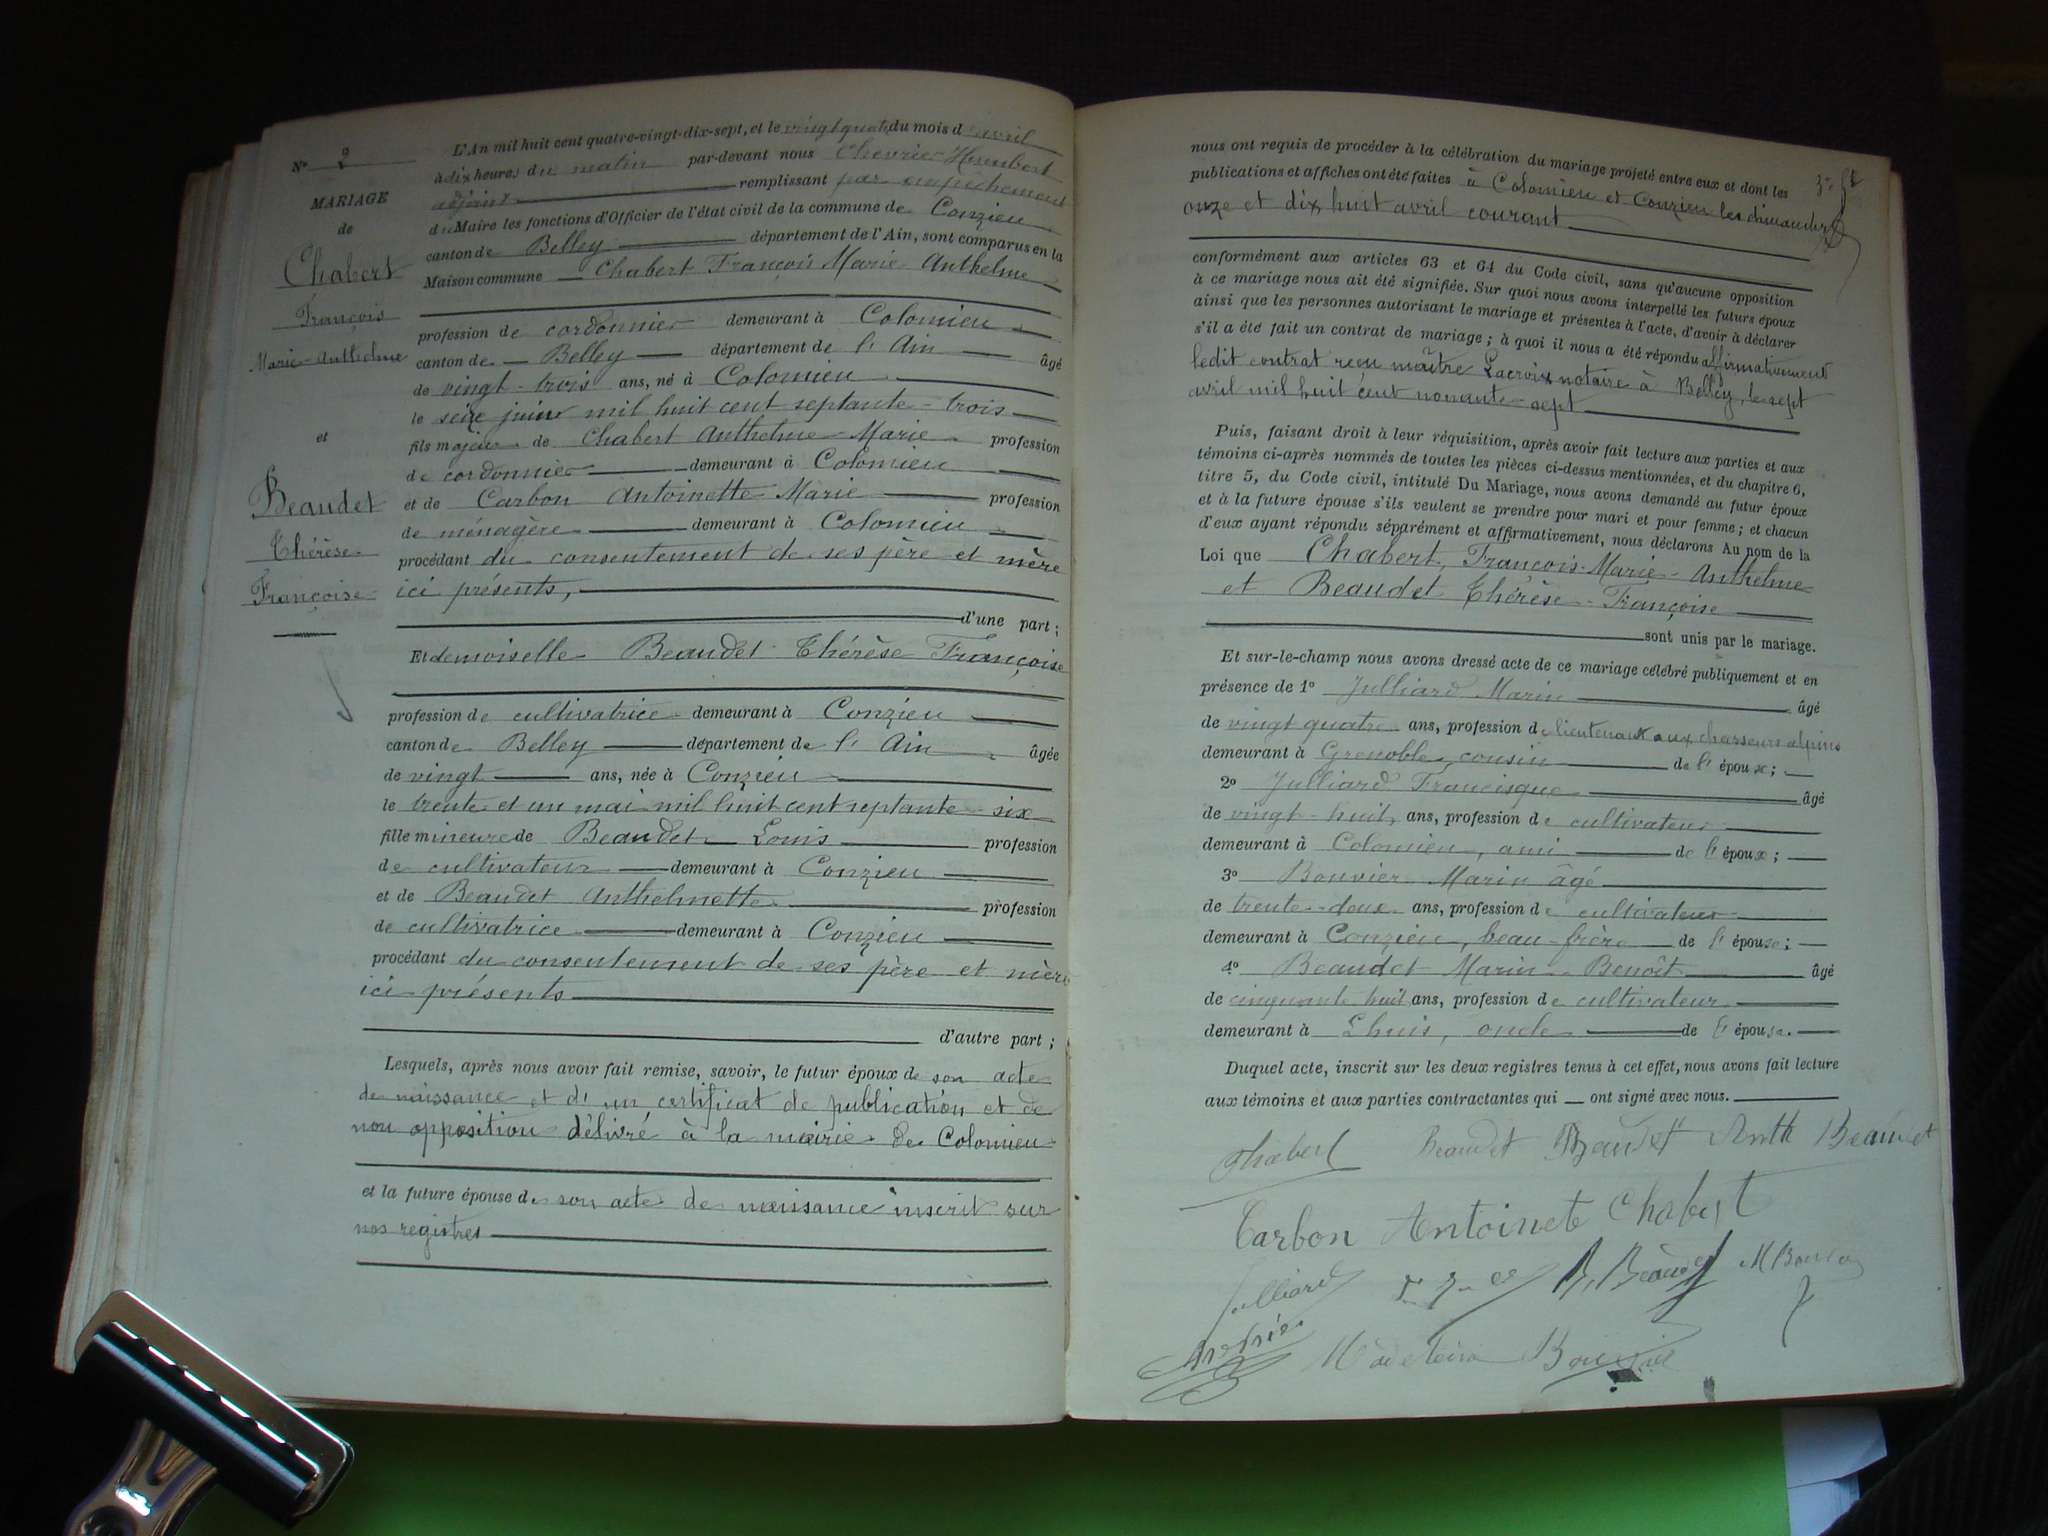 N° 2
MARIAGE
de
Chabert
François
Marie-Anthelme
et
Beaudet
Thérèse
Françoise
L'An mil huit cent quatre-vingt-dix-sept, et le vingt quatre du mois d'avril
à dix heures du matin par-devant nous Chevrier Humbert
adjoint remplissant par empêchement
du Maire les fonctions d'Officier de l'état civil de la commune de Conzieu
canton de Belley département de l'Ain, sont comparus en la
Maison commune Chabert François Marie Anthelme
profession de cordonnier demeurant à Colomieu
canton de Belley département de l'Ain âgé
de vingt-trois ans, né à Colomieu
le seize juin mil huit cent septante-trois
fils majeur de Chabert Anthelme Marie profession
de cordonnier demeurant à Colomieu
et de Carbon Antoinette Marie profession
de ménagère demeurant à Colomieu
procédant du consentement de ses père et mère
ici présents,
d'une part;
Et demoiselle Beaudet Thérèse Françoise
profession de cultivatrice demeurant à Conzieu
canton de Belley département de l'Ain âgée
de vingt ans, née à Conzieu
le trente et un mai mil huit cent septante-six
fille mineure de Beaudet Louis profession
de cultivateur demeurant à Conzieu
et de Beaudet Anthelmette profession
de cultivatrice demeurant à Conzieu
procédant du consentement de ses père et mère
ici présents
d'autre part;
Lesquels, après nous avoir fait remise, savoir, le futur époux de son acte
de naissance et d'un certificat de publication et de
non opposition délivré à la mairie de Colomieu
et la future épouse de son acte de naissance inscrit sur
nos registres
nous ont requis de procéder à la célébration du mariage projeté entre eux et dont les
publications et affiches ont été faites à Colomieu et Conzieu les dimanches
onze et dix huit avril courant
conformément aux articles 63 et 64 du Code civil, sans qu'aucune opposition
à ce mariage nous ait été signifiée. Sur quoi nous avons interpellé les futurs époux
ainsi que les personnes autorisant le mariage et présentes à l'acte, d'avoir à déclarer
s'il a été fait un contrat de mariage; à quoi il nous a été répondu affirmativement
ledit contrat reçu maître Lacroix notaire à Belley, le sept
avril mil huit cent nonante-sept
Puis, faisant droit à leur réquisition, après avoir fait lecture aux parties et aux
témoins ci-après nommés de toutes les pièces ci-dessus mentionnées, et du chapitre 6,
titre 5, du Code civil, intitulé Du Mariage, nous avons demandé au futur époux
et à la future épouse s'ils veulent se prendre pour mari et pour femme; et chacun
d'eux ayant répondu séparément et affirmativement, nous déclarons Au nom de la
Loi que Chabert, François-Marie-Anthelme
et Beaudet Thérèse-Françoise
sont unis par le mariage.
Et sur-le-champ nous avons dressé acte de ce mariage célébré publiquement et en
présence de 1° Julliard Marin âgé
de vingt quatre ans, profession de lieutenant aux chasseurs alpins
demeurant à Grenoble, cousin de l'époux;
2° Julliard Francisque âgé
de vingt-huit ans, profession de cultivateur
demeurant à Colomieu, ami de l'époux;
3° Bouvier Marin âgé
de trente-deux ans, profession de cultivateur
demeurant à Conzieu, beau-frère de l'épouse;
4° Beaudet Marin-Benoît âgé
de cinquante huit ans, profession de cultivateur
demeurant à Lhuis, oncle de l'épouse.
Duquel acte, inscrit sur les deux registres tenus à cet effet, nous avons fait lecture
aux témoins et aux parties contractantes qui ont signé avec nous.
Chabert Beaudet Beaudet Anth Beaudet
Carbon Antoinete Chabert
Julliard B. Beaudet M Bouvier